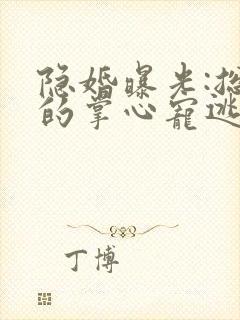 隐婚曝光:总
的掌心宠逃
丁博